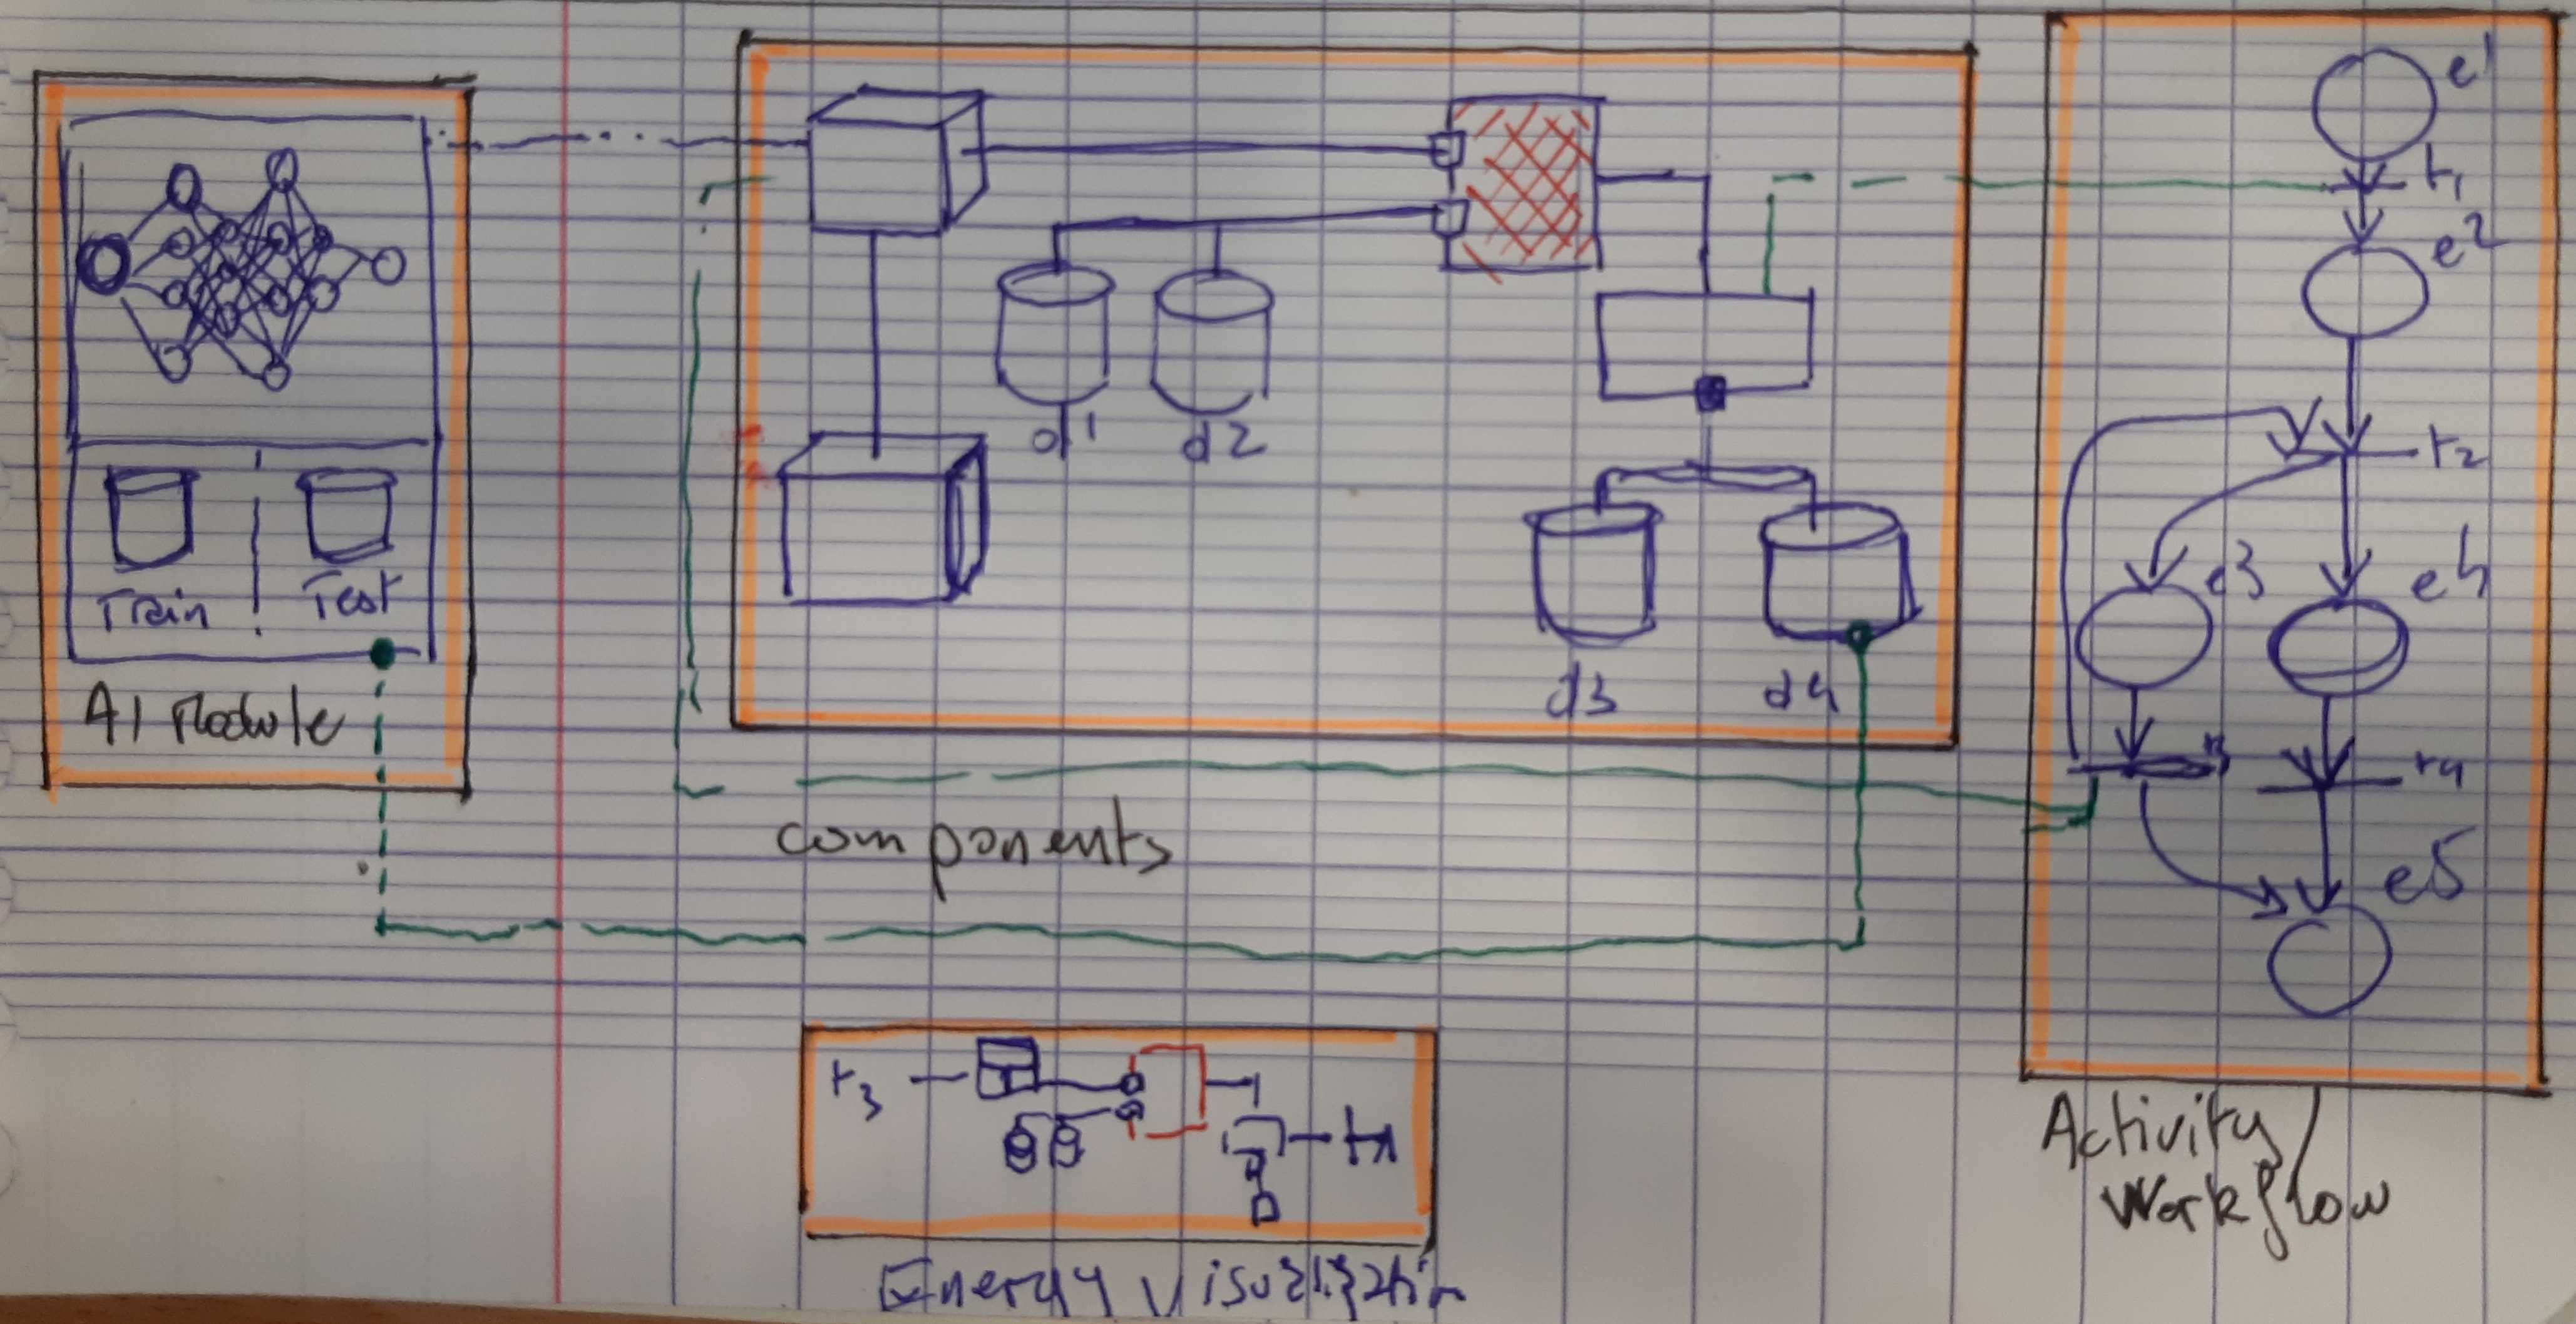 Train
Test
AI Module
d1
d2
d3
d4
components
e1
t1
e2
t2
e3
e4
t3
t4
e5
Activity
Workflow
t3
Energy Visualization